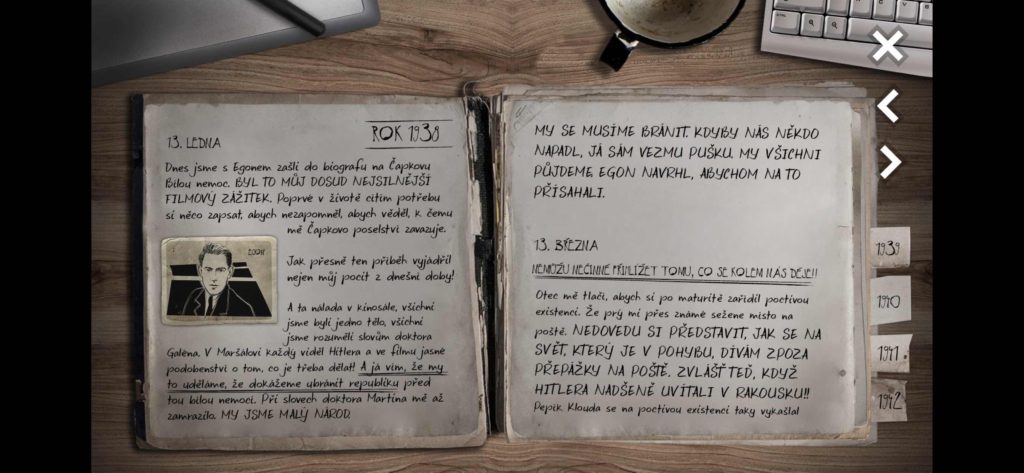 ROK 1938
13. LEDNA
Dnes jsme s Egonem zašli do biografu na Čapkovu
Bílou nemoc. BYL TO MŮJ DOSUD NEJSILNĚJŠÍ
FILMOVÝ ZÁŽITEK. Poprvé v životě cítím potřebu
si něco zapsat, abych nezapomněl, abych věděl, k čemu
mě Čapkovo poselství zavazuje.
Jak přesně ten příběh vyjádřil
nejen můj pocit z dnešní doby!
A ta nálada v kinosále, všichni
jsme byli jedno tělo, všichni
jsme rozuměli slovům doktora
Galéna. V Maršálovi každý viděl Hitlera a ve filmu jasné
podobenství o tom, co je třeba dělat! A já vím, že my
to uděláme, že dokážeme ubránit republiku před
tou bílou nemocí. Při slovech doktora Martina mě až
zamrazilo. MY JSME MALÝ NÁROD.
MY SE MUSÍME BRÁNIT. KDYBY NÁS NĚKDO
NAPADL, JÁ SÁM VEZMU PUŠKU. MY VŠICHNI
PŮJDEME. EGON NAVRHL, ABYCHOM NA TO
PŘÍSAHALI.
13. BŘEZNA
NEMŮŽU NEČINNĚ PŘIHLÍŽET TOMU, CO SE KOLEM NÁS DĚJE!!
Otec mě tlačí, abych si po maturitě zařídil poctivou
existenci. Že prý mi přes známé sežene místo na
poště. NEDOVEDU SI PŘEDSTAVIT, JAK SE NA
SVĚT, KTERÝ JE V POHYBU, DÍVÁM ZPOZA
PŘEPÁŽKY NA POŠTĚ. ZVLÁŠŤ TEĎ, KDYŽ
HITLERA NADŠENĚ UVÍTALI V RAKOUSKU!!
Pepík Klouda se na poctivou existenci taky vykašlal
1939
1940
1941
1942